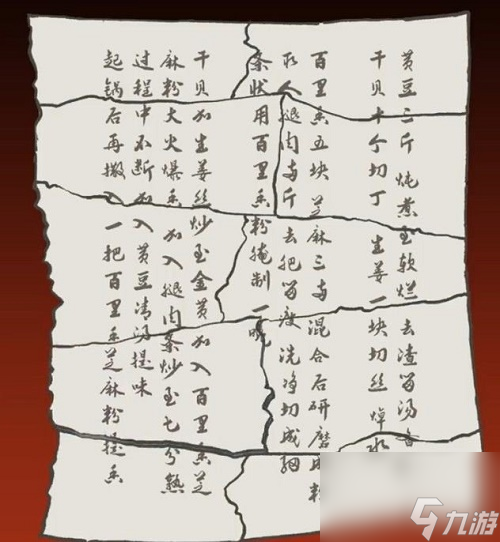 黄豆二斤 炖煮至软烂 去渣留汤备
干贝十个切丁 生姜一块切丝焯水
百里香五块 芝麻三两 混合后研磨成粉
取人腿肉两斤 去肥留瘦 洗净切成细
条状用百里香粉腌制一晚
干贝加生姜丝炒至金黄加入百里香芝
麻粉大火爆香 加入腿肉条炒至七分熟
过程中不断加入黄豆清汤提味
起锅后再撒入一把百里香芝麻粉提香
九游